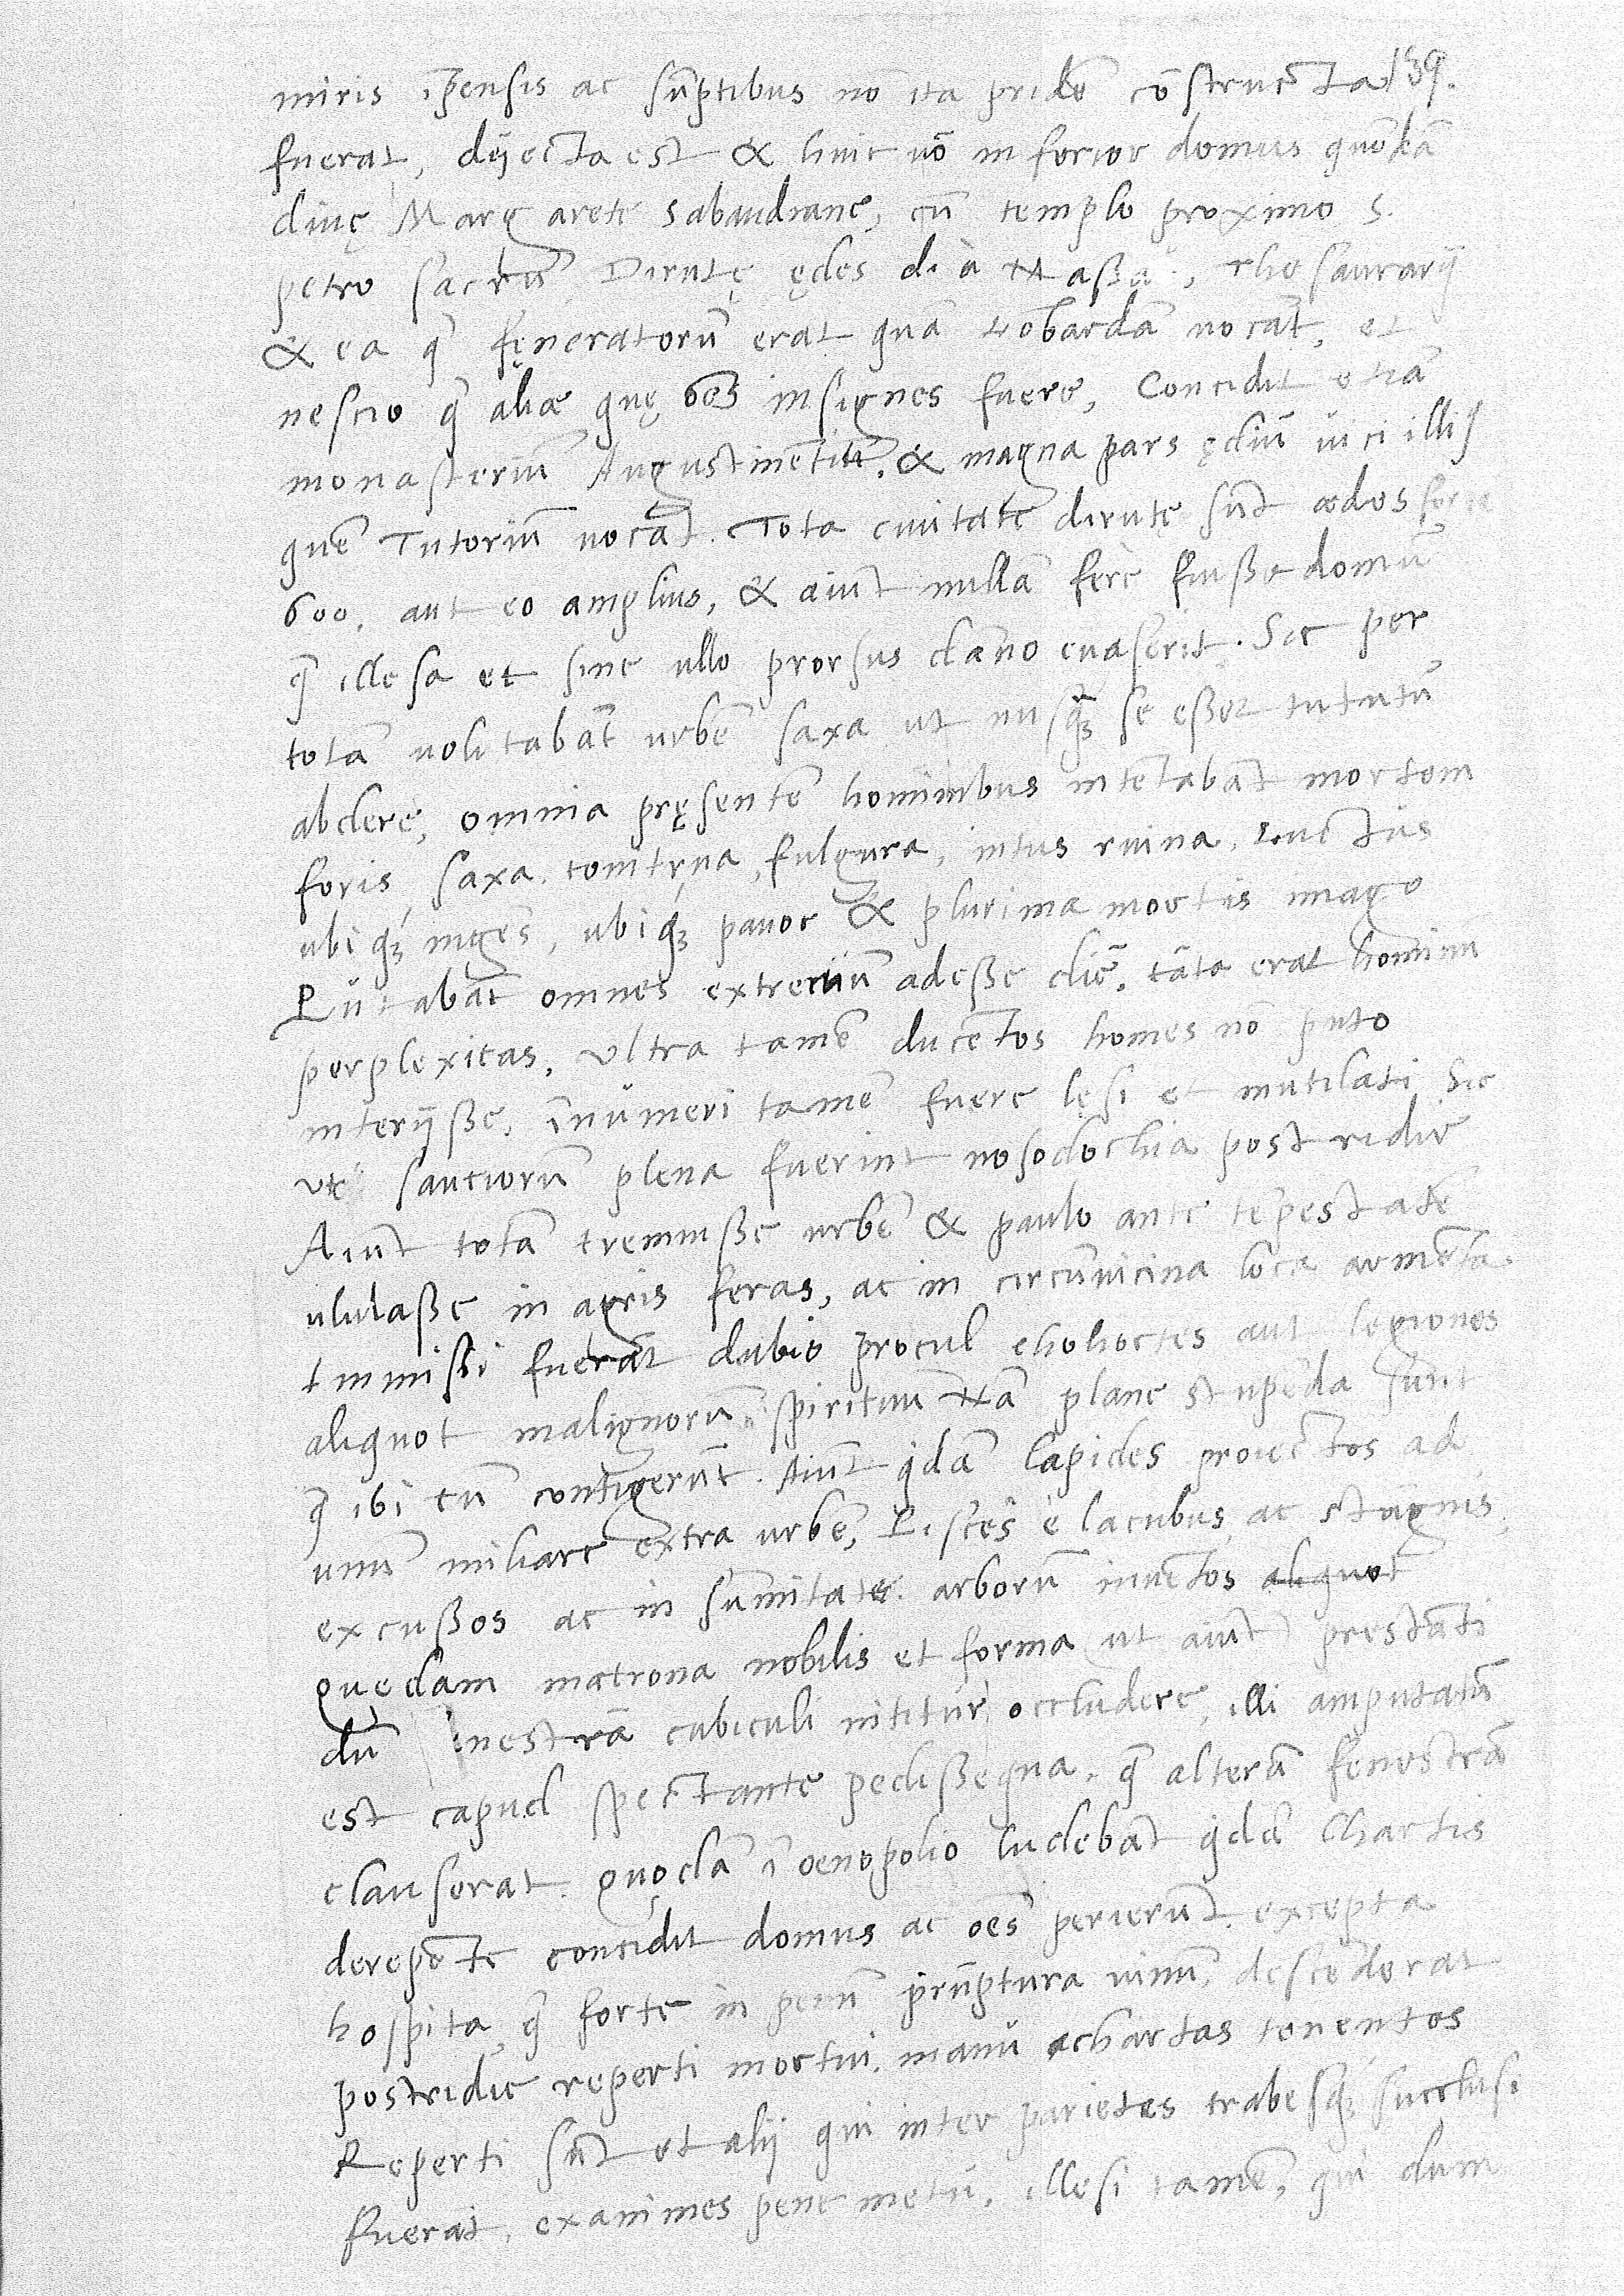 139.
miris īpensis ac sūptibus nō ita pridē cōstructa
fuerat, dijecta est & huic nō inferior domus quōdā
diuę Margarete sabaudiane, cū templo proximo S.
petro sacrū, Dirutę ędes di à Naßau, thesaurarij
& ea q̄ fęneratorū erat quā Lobardā uocāt, et
nescio q̄ aliæ quę oēs insignes fuere, Concidit etiā
monasteriū Augustinētiū, & magna pars ędiū uici illiꝰ
quē Tutoriū uocāt. Tota ciuitate dirutę sūt ædes ferie
600. aut eo amplius, & aiūt nullā ferè fuiße domū
q̄ illesa et sine ullo prorsus dāno euaserit. Sic per
totā uolitabāt urbē saxa ut nusq̄ꝫ se eßet tututū
abdere, omnia pręsentē hominibus intētabāt mortem
foris saxa, tonitrua, fulgura, intus ruina, Luctus
ubiqꝫ ingēs, ubiqꝫ pauor & plurima mortis imago
Pūtabāt omnes extremū adeße diē, tāta erat hominū
perplexitas, Ultra tamē ducētos homēs nō puto
interijße, īnūmeri tamē fuere lęsi et mutilati Sic
ut sauciorū plena fuerint nosodochia postridie
Aiūt totā tremuiße urbē & paulo ante tēpestatē
ululaße in agris feras, ac in circūuicina loca armēta
īmmissi fuerāt dubio procul chohortes aut legiones
aliquot malignorū spirituū Nā plane stupēda sunt
q̄ ibi tū contigerūt. Aiūt qdā lapides proiectos ad
unū miliare extra urbē, Piscēs è lacubus ac stagnis
excußos ac in sūmitate arborū inuētos aliquot
quędam matrona nobilis et forma (ut aiūt) prestāti
dū fenestrā cubiculi nititur occludere, illi amputatū
est capud spectante pedißequa, q̄ alterā fenestrā
clauserat. Quodā ī oenopolio ludebāt qdā Chartis
derepēte concidit domus ac oēs perierūt, excepta
hospita, q̄ forte in penū prūptura uinū, descēderat
postridie reperti mortui, manū chartas tenentes
Reperti sūt et alij qui inter parietes trabesqꝫ succlusi
fuerāt, exanimes pene metu, illesi tamē, qui dum